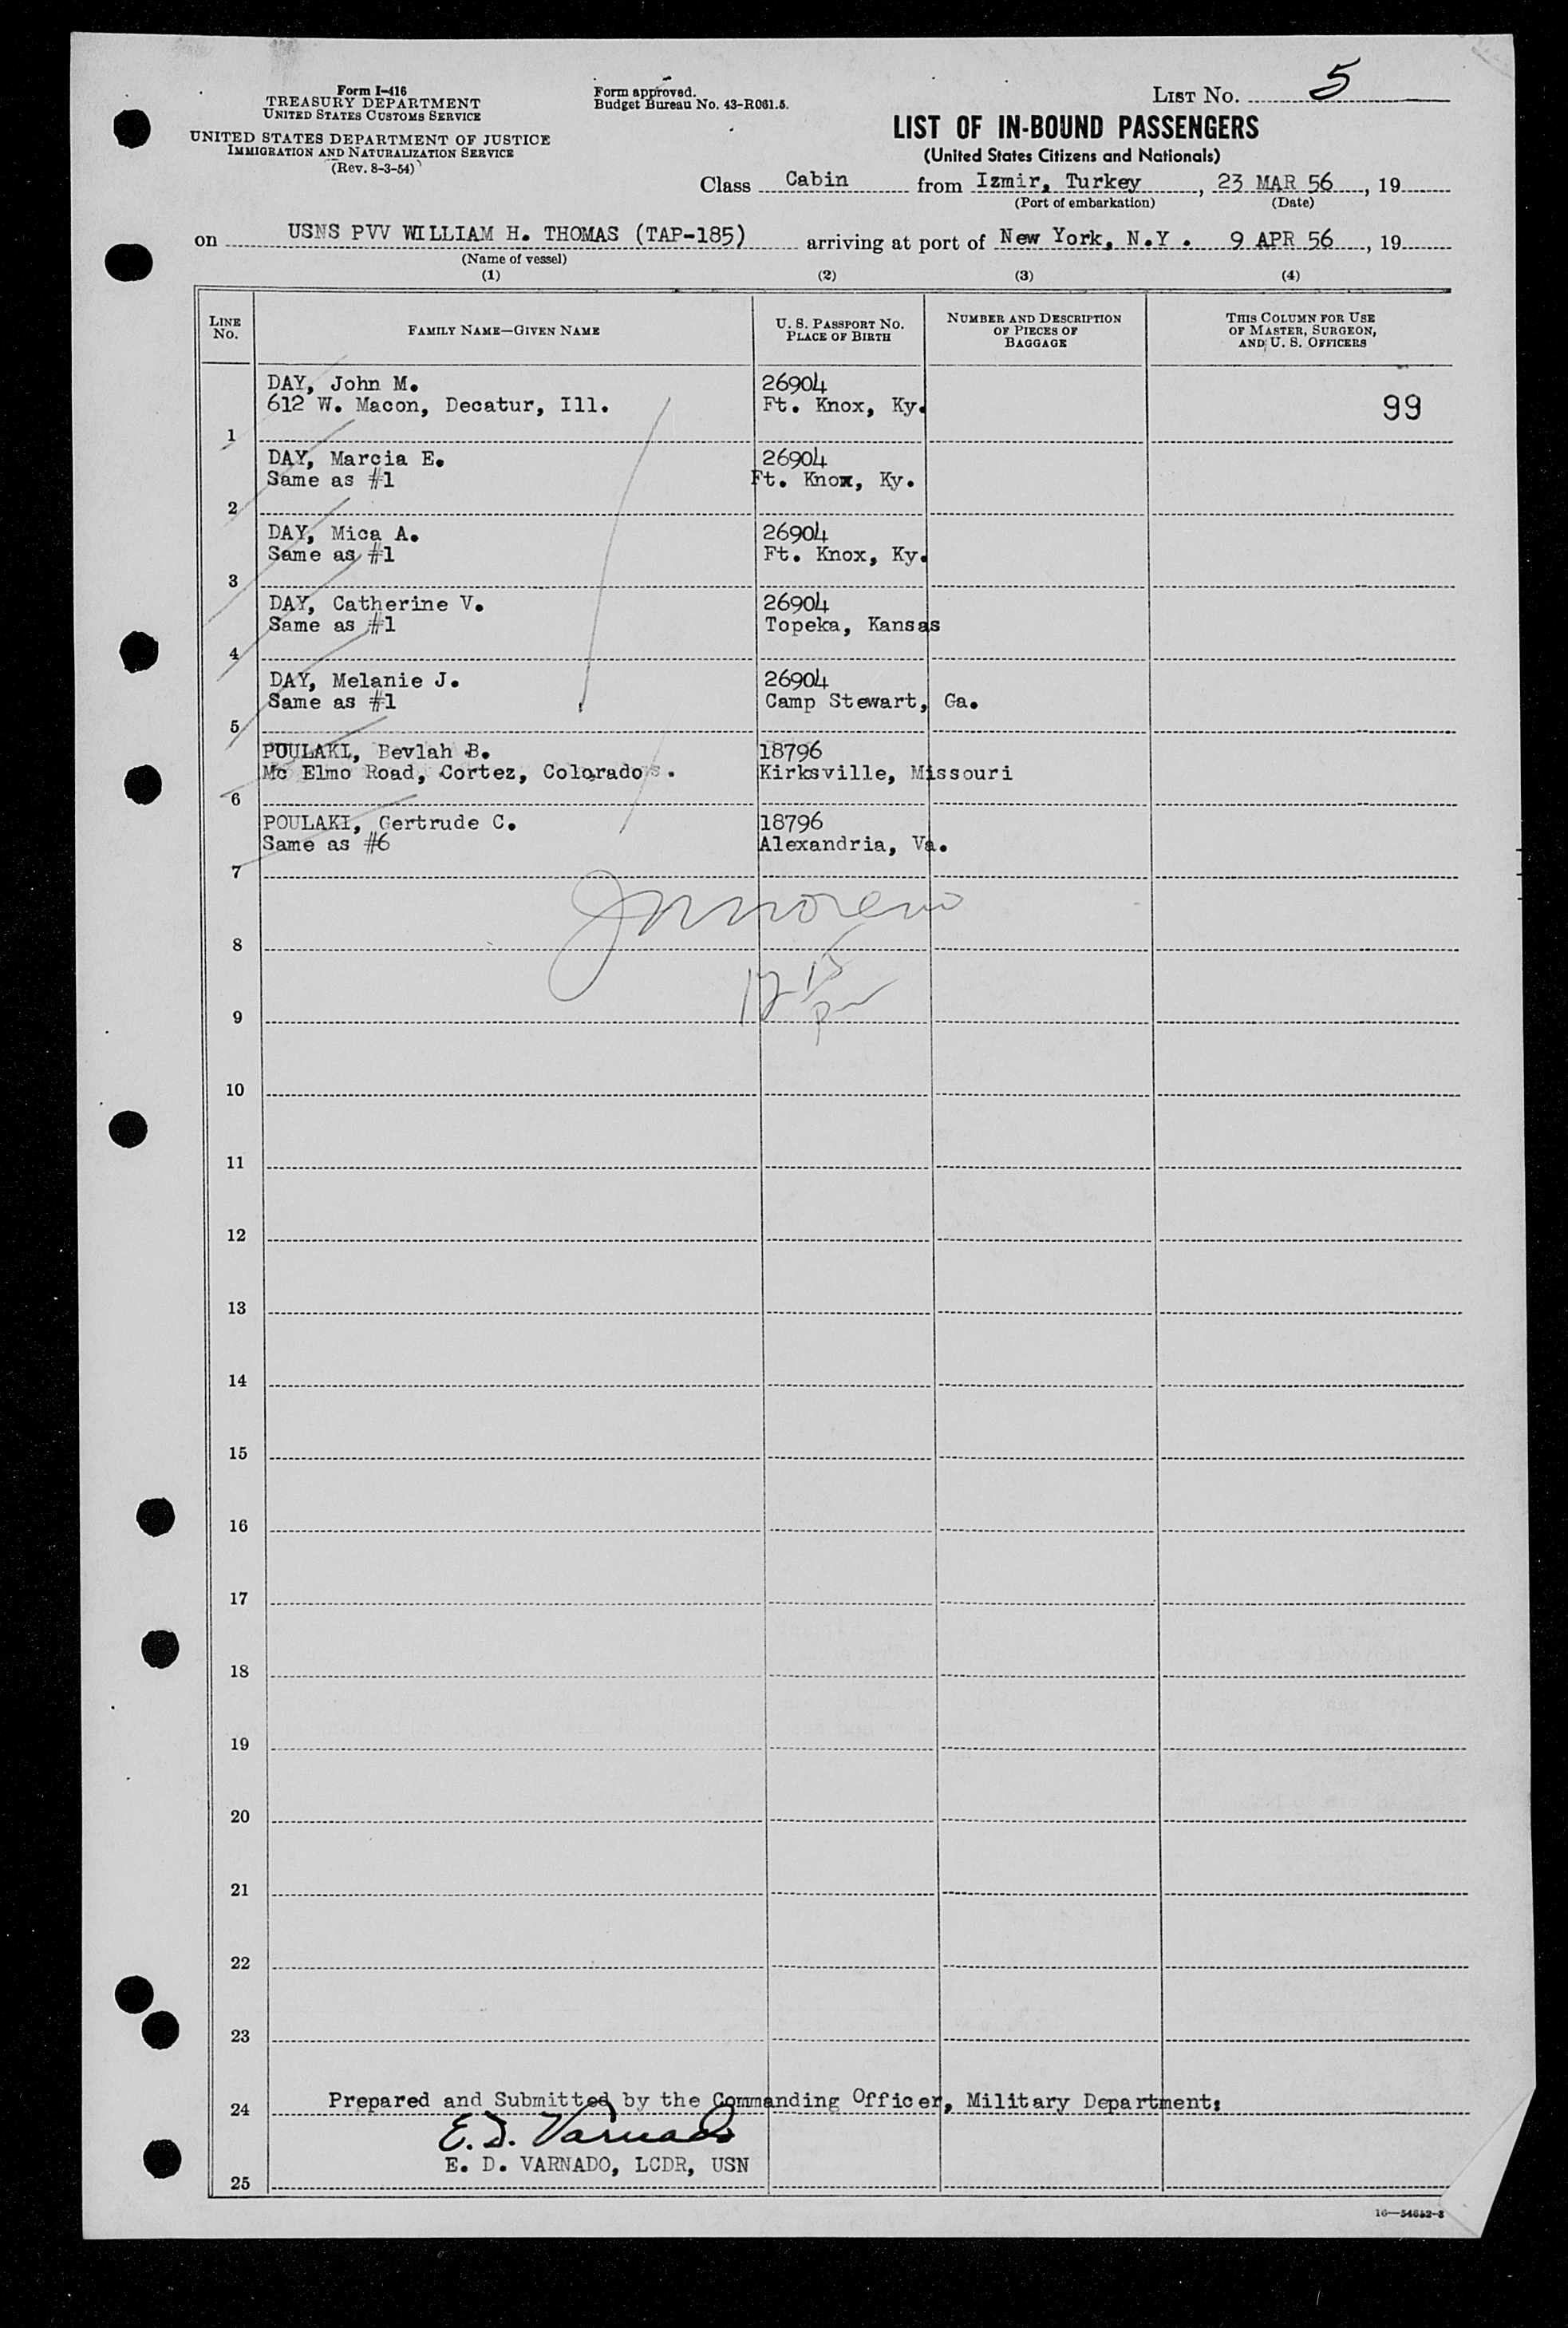 Form I-416
TREASURY DEPARTMENT
UNITED STATES CUSTOMS SERVICE
UNITED STATES DEPARTMENT OF JUSTICE
IMMIGRATION AND NATURALIZATION SERVICE
(Rev. 8-3-54)
Form approved.
Budget Bureau No. 43-R061.5.
LIST NO. 5
LIST OF IN-BOUND PASSENGERS
(United States Citizens and Nationals)
Class Cabin from Izmir, Turkey, 23 MAR 56, 19
(Port of embarkation) (Date)
on USNS PVV WILLIAM H. THOMAS (TAP-185) arriving at port of New York, N.Y. 9 APR 56, 19
(Name of vessel)
(1) (2) (3) (4)
LINE NO. FAMILY NAME—GIVEN NAME U. S. PASSPORT NO. PLACE OF BIRTH NUMBER AND DESCRIPTION OF PIECES OF BAGGAGE THIS COLUMN FOR USE OF MASTER, SURGEON, AND U. S. OFFICERS
DAY, John M. 26904
612 W. Macon, Decatur, Ill. Ft. Knox, Ky. 99
1
DAY, Marcia E. 26904
Same as #1 Ft. Knox, Ky.
2
DAY, Mica A. 26904
Same as #1 Ft. Knox, Ky.
3
DAY, Catherine V. 26904
Same as #1 Topeka, Kansas
4
DAY, Melanie J. 26904
Same as #1 Camp Stewart, Ga.
5
POULAKI, Bevlah B. 18796
Mc Elmo Road, Cortez, Colorado. Kirksville, Missouri
6
POULAKI, Gertrude C. 18796
Same as #6 Alexandria, Va.
7
8
12 15 pm
9
10
11
12
13
14
15
16
17
18
19
20
21
22
23
Prepared and Submitted by the Commanding Officer, Military Department:
24
E. D. Varnado
E. D. VARNADO, LCDR, USN
25
16—54652-3